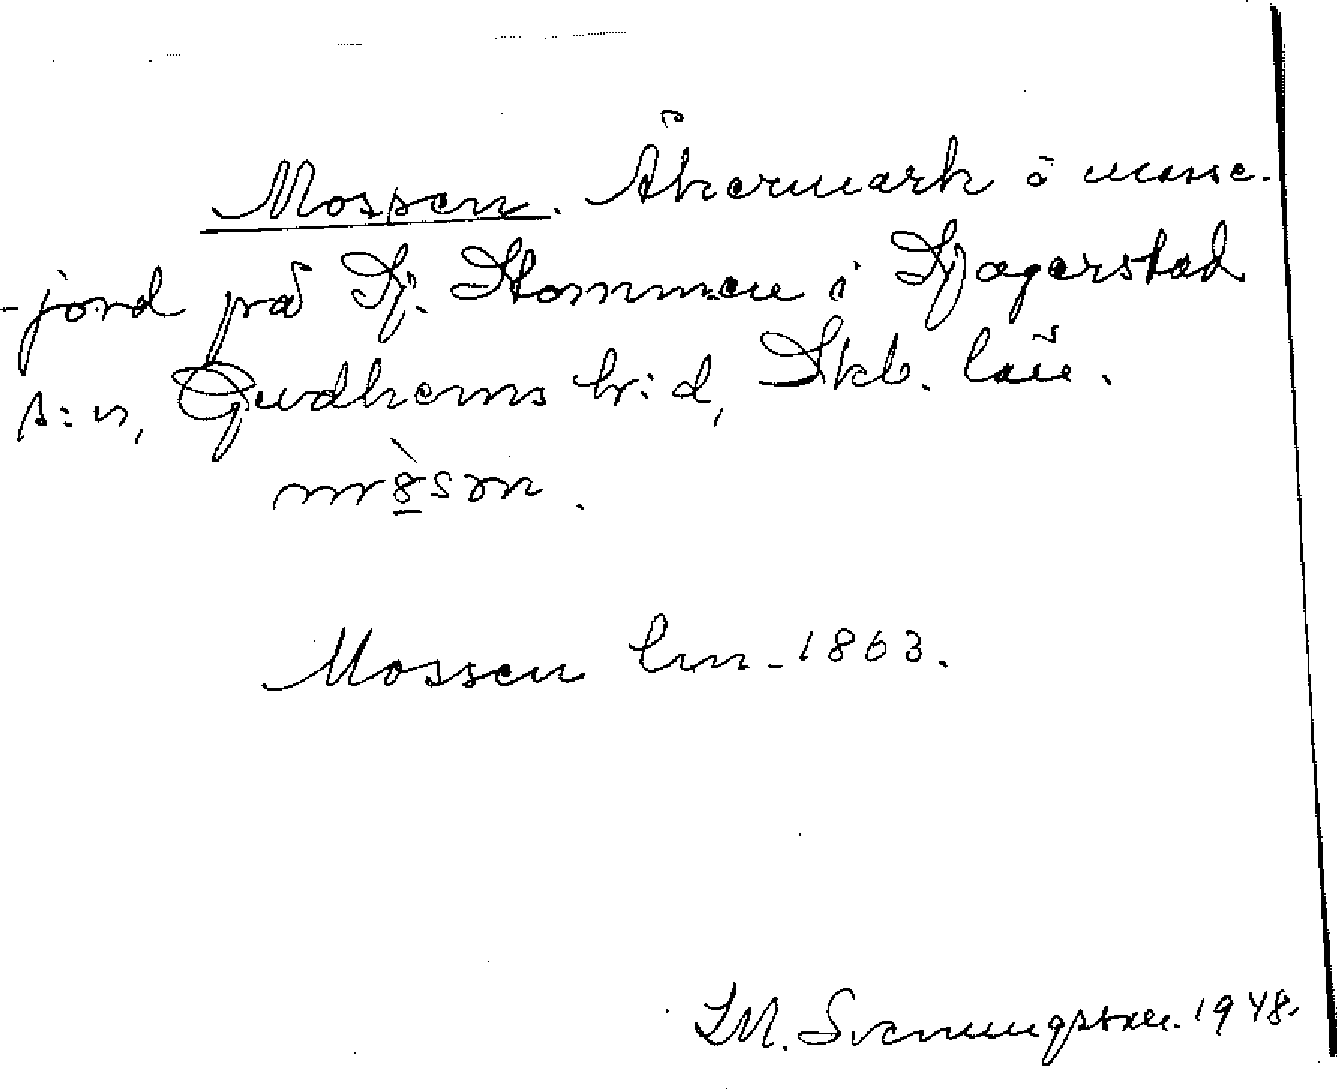 Mossen. Åkermark o mosse-
-jord på Sj. Stommen i Sjogerstad
s:n, Gudhems h:d, Skb. län.
Mossen lm. 1863.
Svenungsson. 1948.